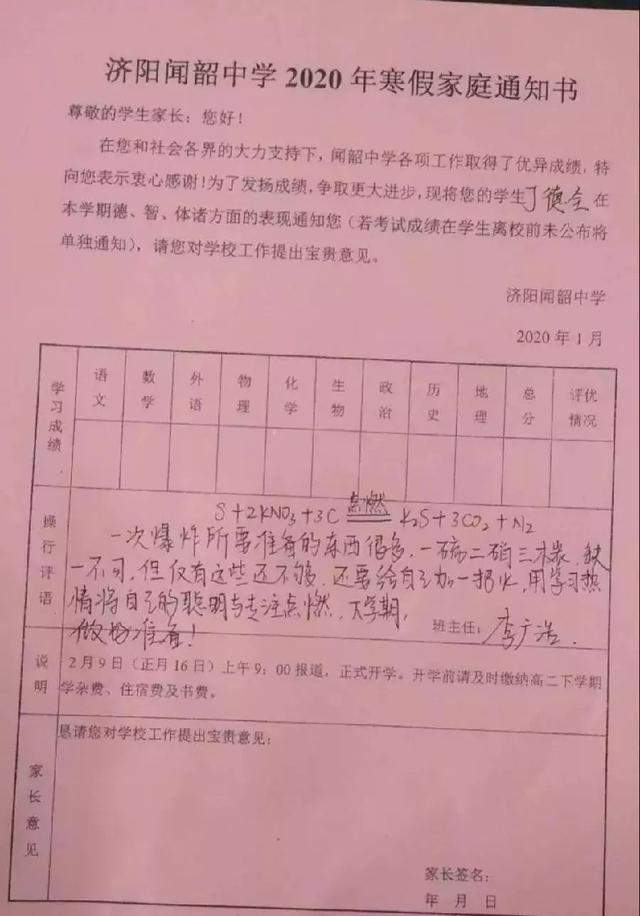 济阳闻韶中学2020年寒假家庭通知书
尊敬的学生家长：您好！
在您和社会各界的大力支持下，闻韶中学各项工作取得了优异成绩，特
向您表示衷心感谢！为了发扬成绩，争取更大进步，现将您的学生丁德全在
本学期德、智、体诸方面的表现通知您（若考试成绩在学生离校前未公布将
单独通知），请您对学校工作提出宝贵意见。
济阳闻韶中学
2020年1月
学习成绩
语文 数学 外语 物理 化学 生物 政治 历史 地理 总分 评优情况
操行评语
S+2KNO₃+3C 点燃 K₂S+3CO₂+N₂
一次爆炸所要准备的东西很多，一硫二硝三木炭，缺
一不可，但仅有这些还不够，还要给自己加一把火，用学习热
情将自己的聪明与专注点燃，下学期，
做好准备！
班主任：李广浩.
说明
2月9日（正月16日）上午9：00报道，正式开学。开学前请及时缴纳高二下学期
学杂费、住宿费及书费。
家长意见
恳请您对学校工作提出宝贵意见：
家长签名：
年 月 日